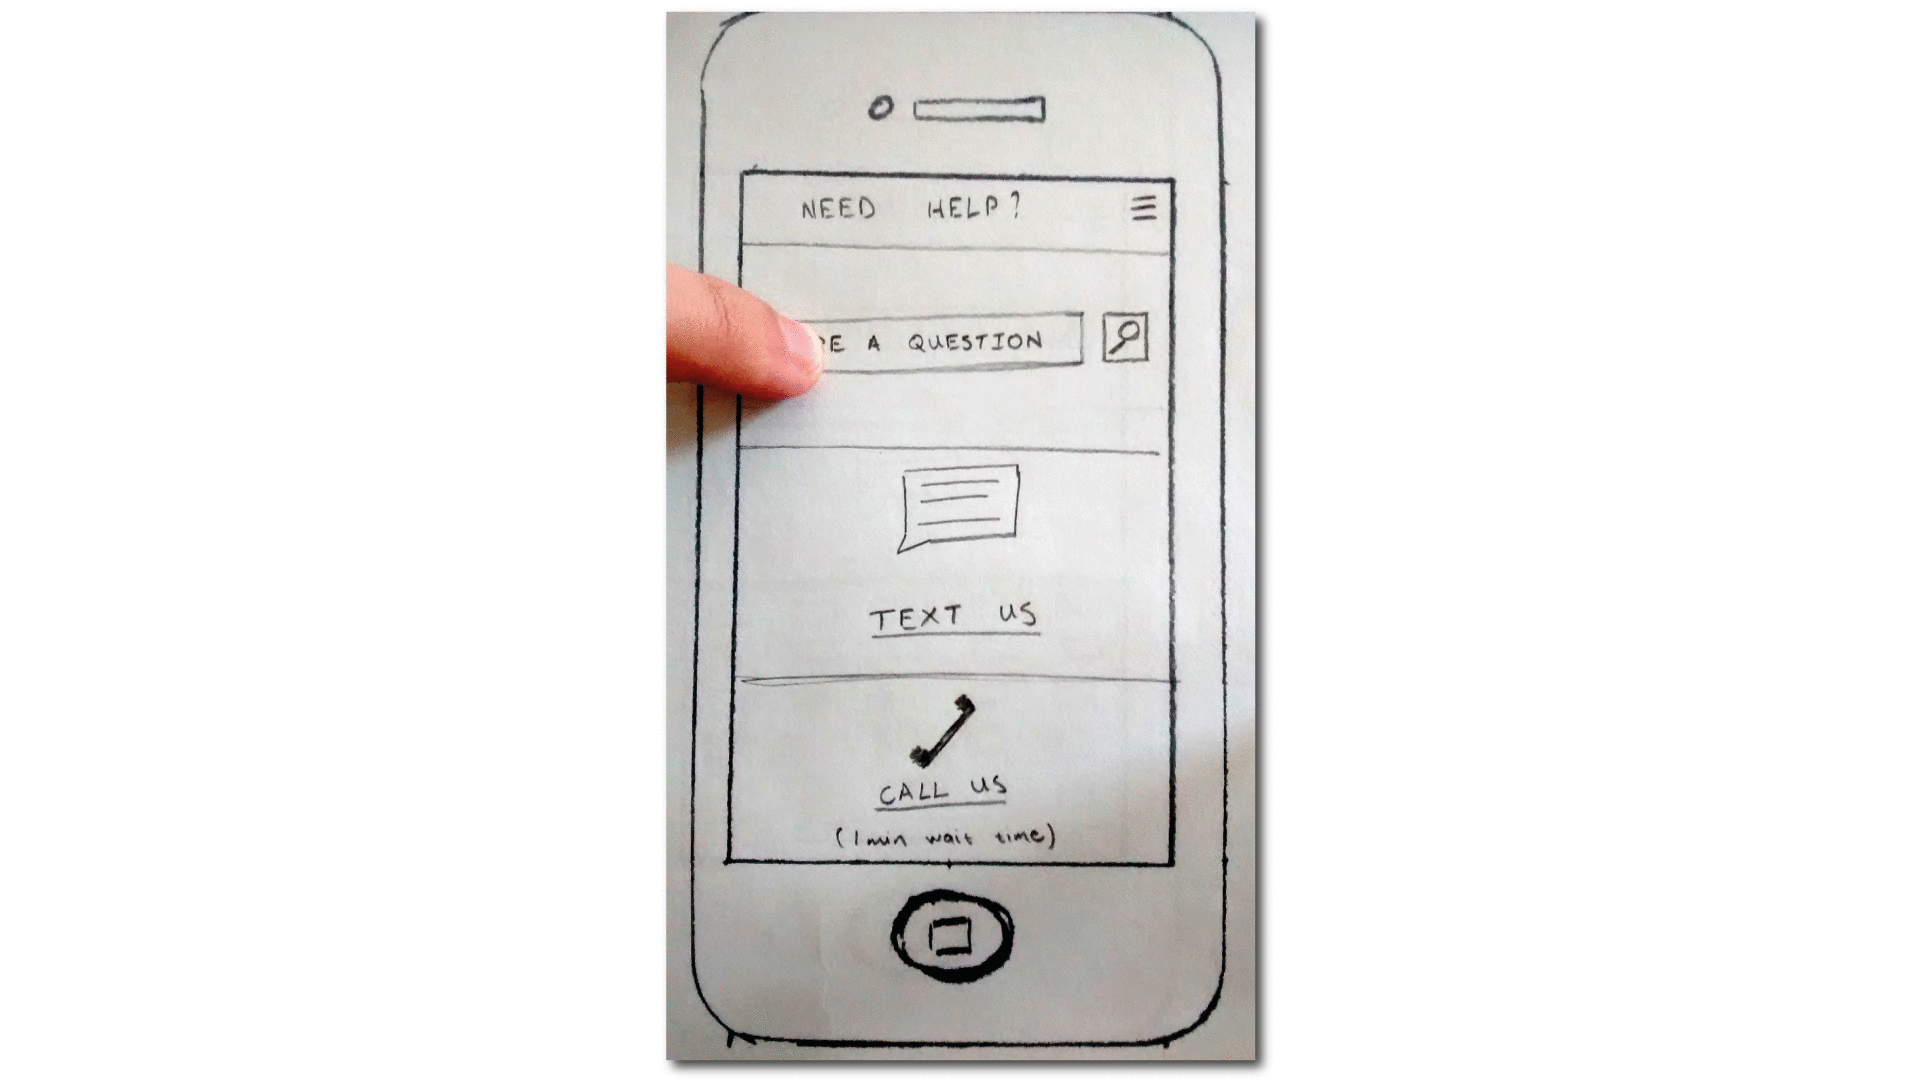 NEED HELP?
A QUESTION
TEXT US
CALL US
(1 min wait time)